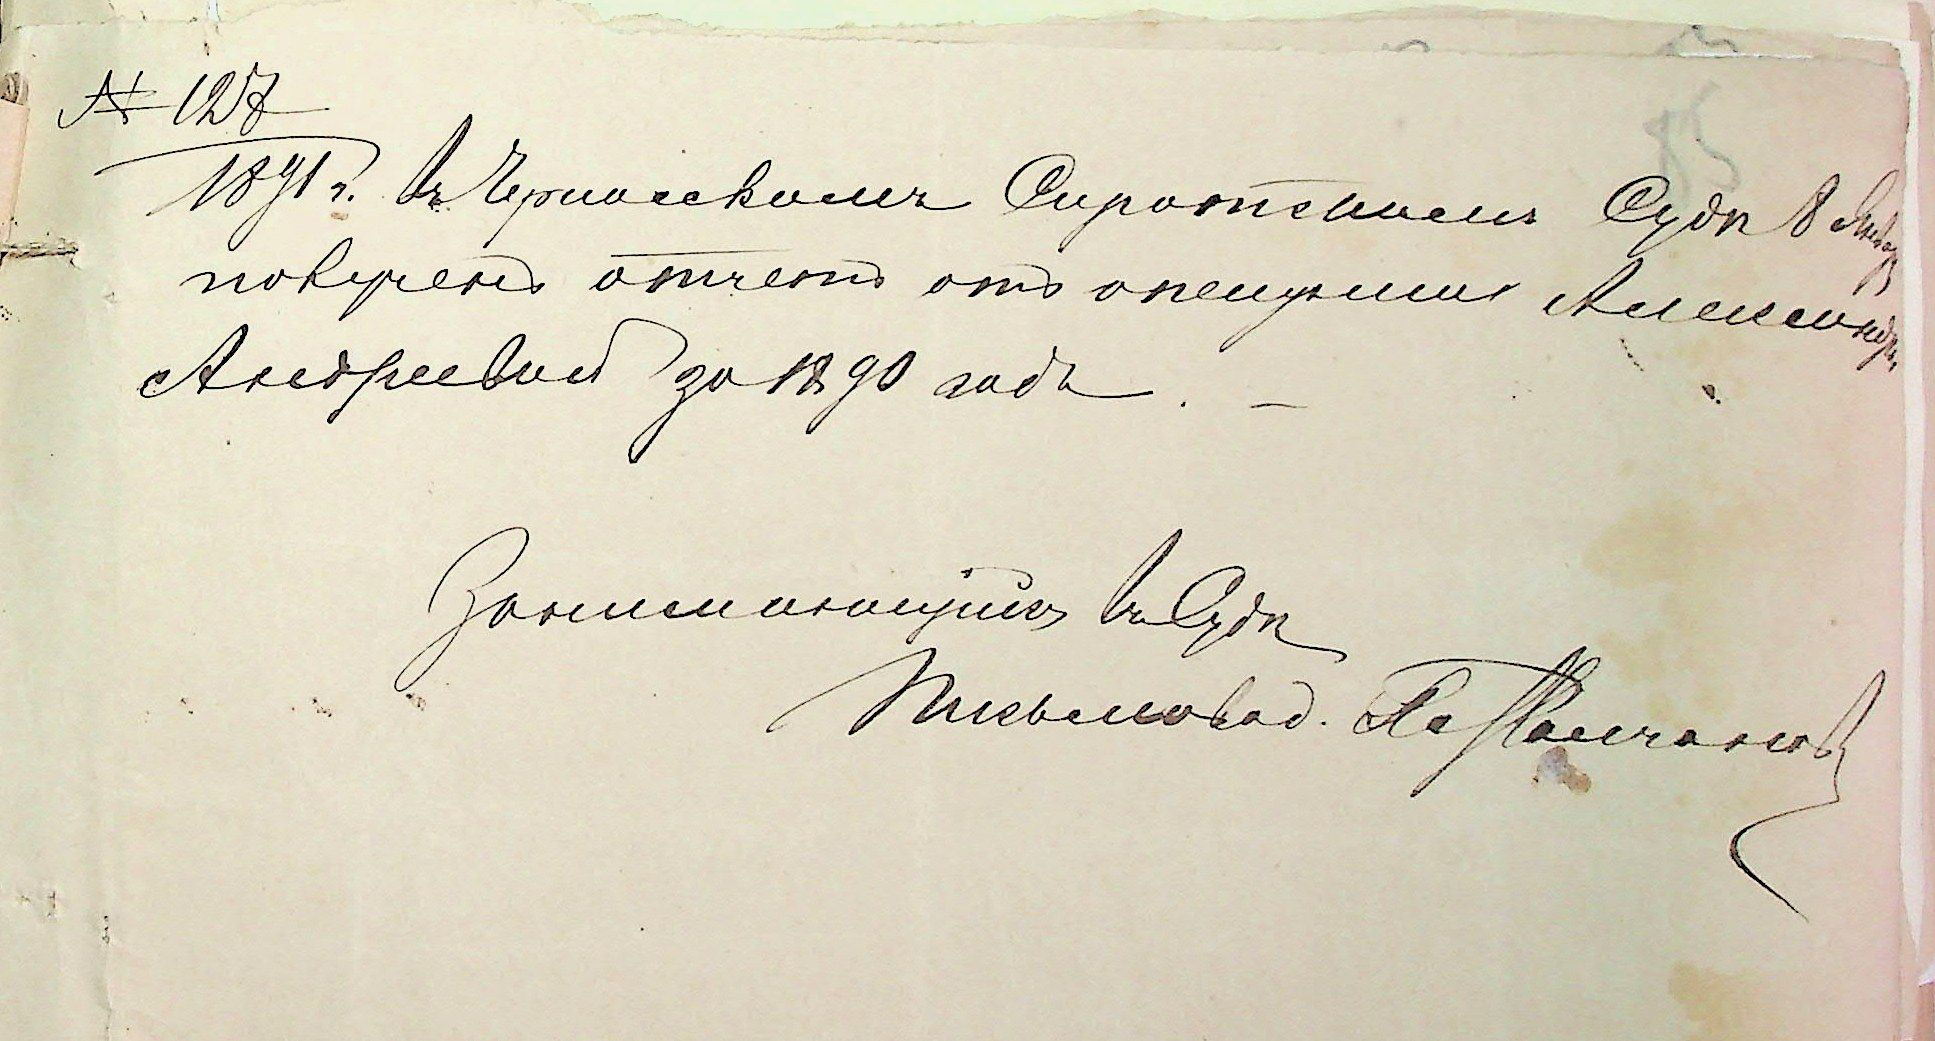 № 127
1891 г. Въ Черкасскомъ Сиротскомъ Судѣ 8 Января
получено отчетъ отъ опекунши Александры
Андреевой за 1890 годъ. —
Занимающійся въ Судѣ
Письмовод.